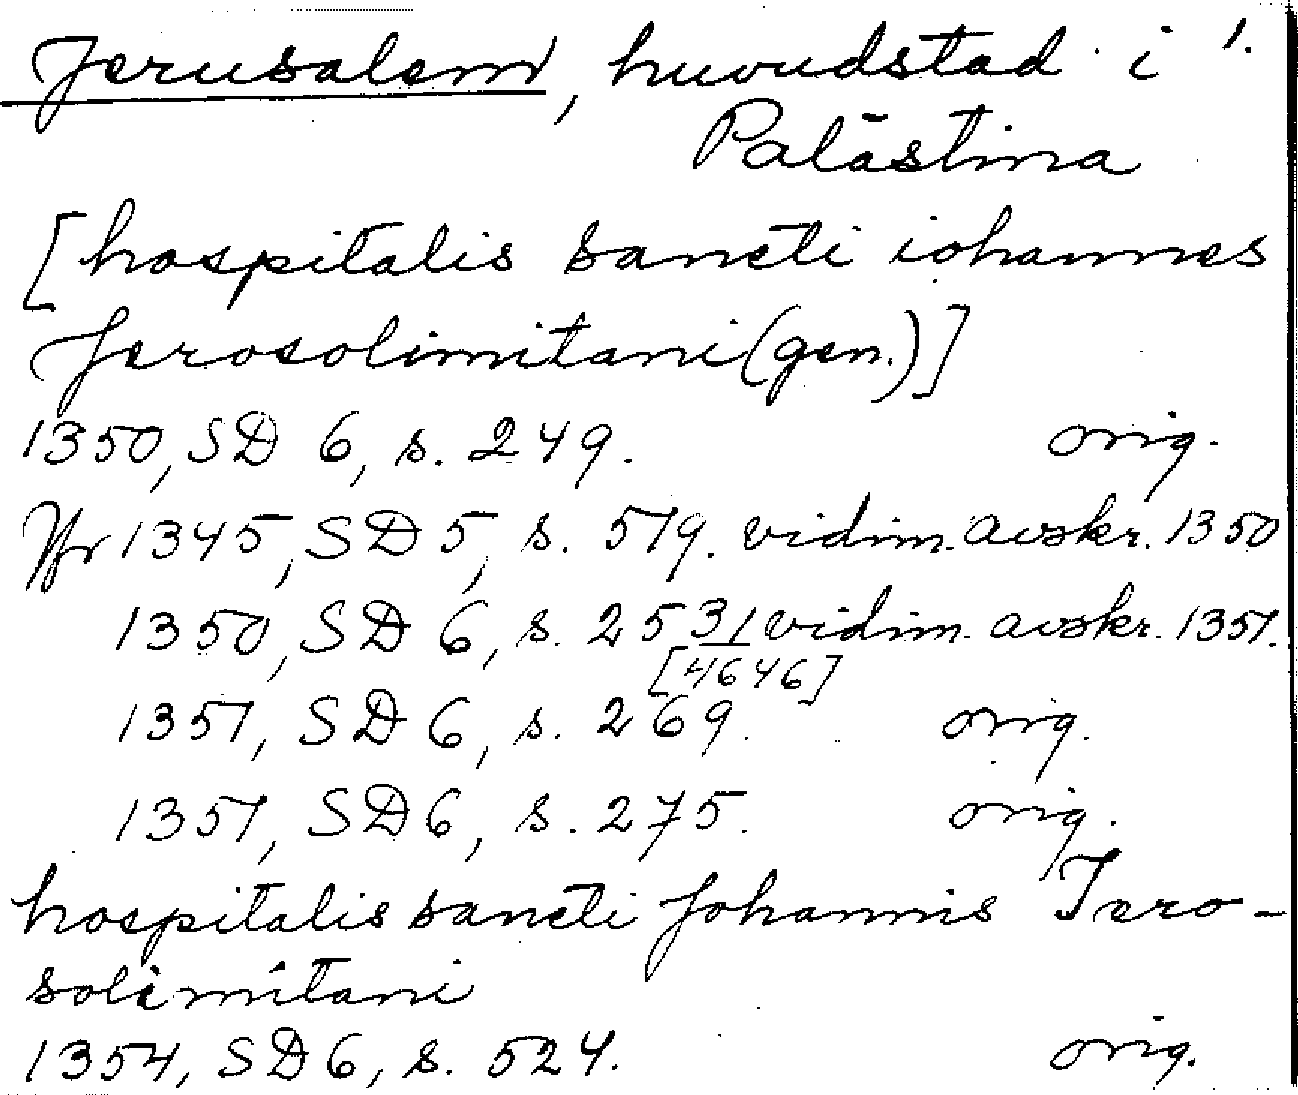 Jerusalem, huvudstad i 1.
Palästina
[hospitalis sancti iohannes
Jerosolimitani (gen.)]
1350, SD 6, s. 249. orig.
Jfr 1345, SD 5, s. 519. vidim. avskr. 1350
1350, SD 6, s. 253 vidim. avskr. 1351.
[4646]
1351, SD 6, s. 269. orig.
1351, SD 6, s. 275. orig.
hospitalis sancti Johannis Iero-
solimitani
1354, SD 6, s. 524. orig.